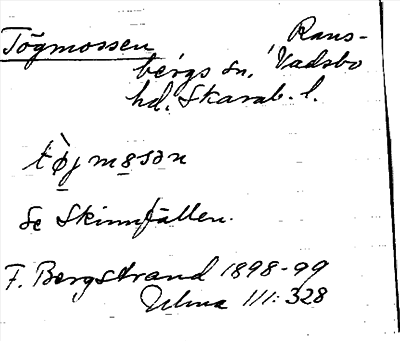 Tögmossen, Rans-
bergs sn, Vadsbo
hd, Skarab. l.
tø̀jmosən
Se Skinnfällen.
F. Bergstrand 1898-99
Ulma 111:328